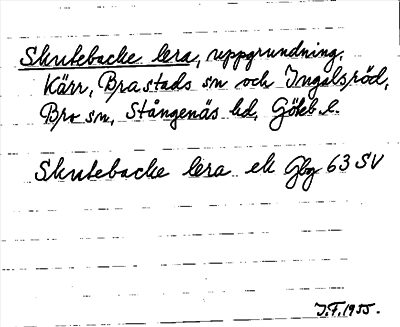 Skutebacke lera, uppgrundning,
Kärr, Brastads sn och Ingalsröd,
Bro sn, Stångenäs hd, Göteb. l.
Skutebacke lera ek Gbg 63 SV
J.F. 1955.